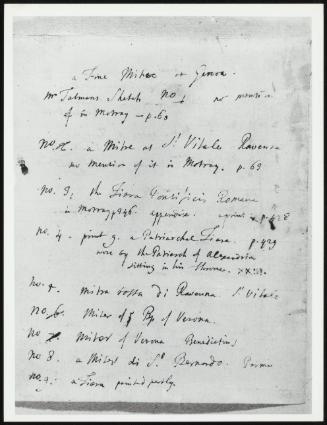 a Fine Mitre at Genoa.
Mr Talmans Sketch No 1 no mention
of in Motray - p. 60
No. 2. a Mitre at St Vitales Ravenna
no mention of it in Motray. p. 63
no. 3. the Tiara Pontificis Romani
in motray p 346. appendix. p. 428
no. 4. print 9. a Patriarchal Tiara. p. 429
wore by the Patriarch of Alexandria
sitting in his throne.
No. 5. mitra rossa di Ravenna. St Vitale
No. 6. Miter of ye Bp of Verona.
no 7. Miter of Verona Benedictins
no 8. a Miter di Sn Bernardo. Parma
no. 9. a Tiara printed partly.